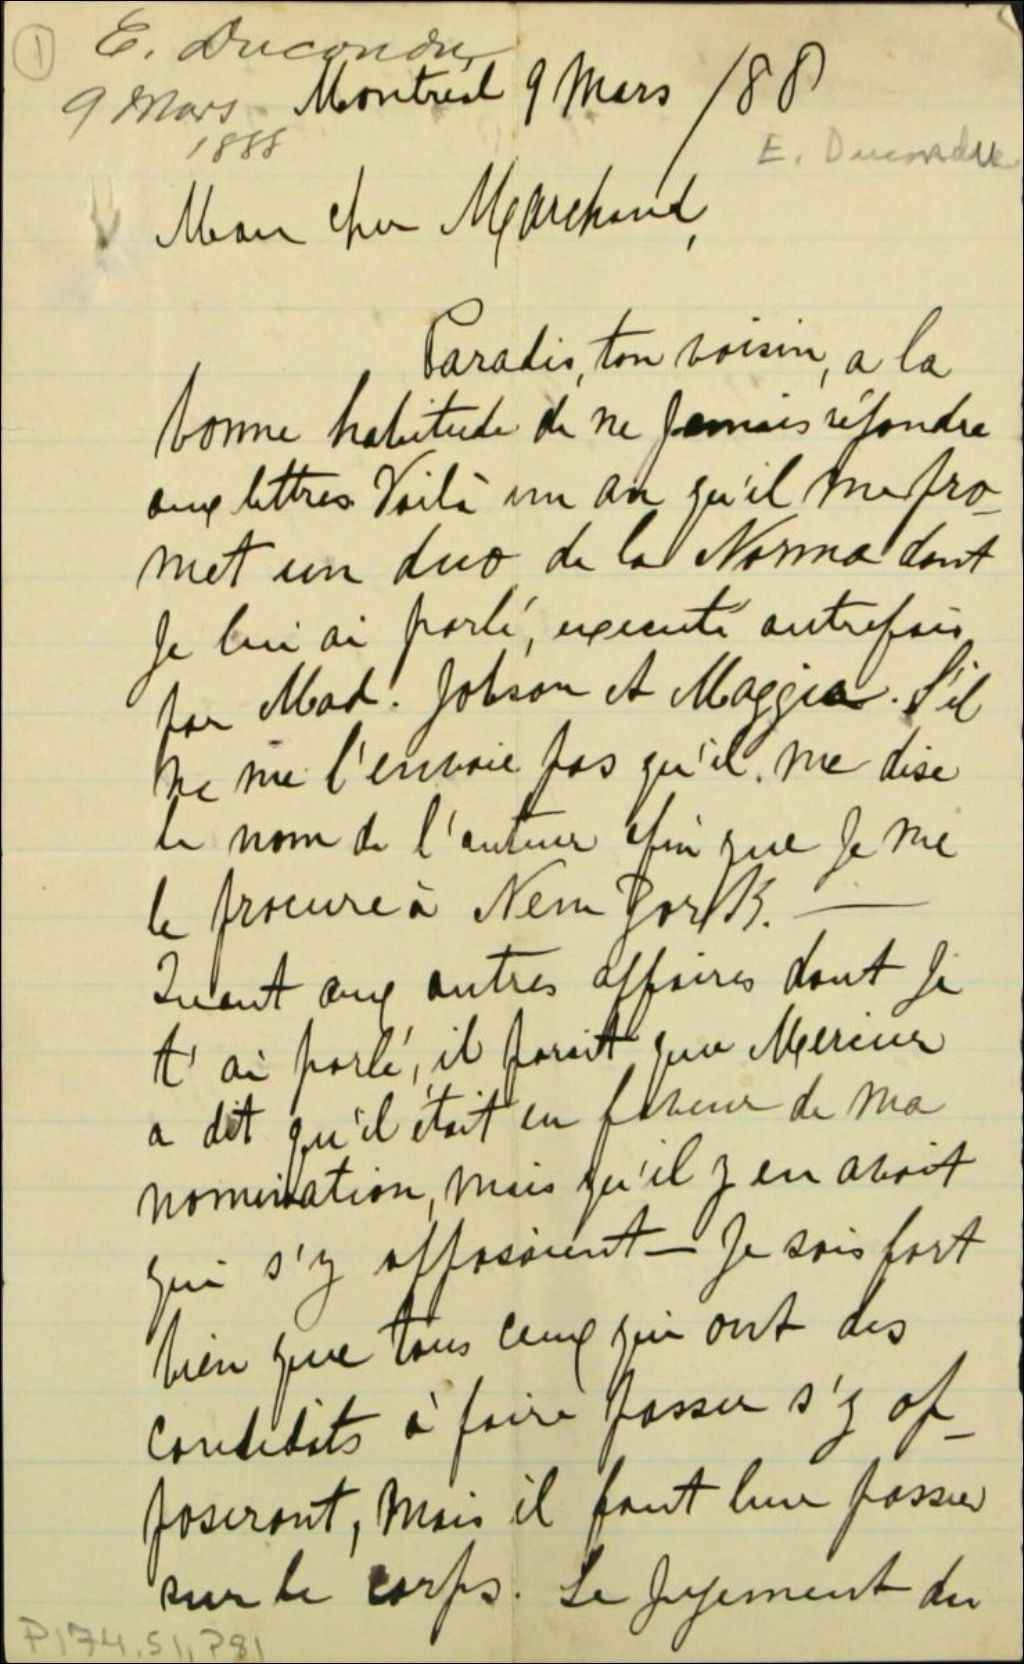 1
E. Ducondu
9 Mars
1888
Montréal 9 Mars /88
E. Ducondu
Mon cher Marchand,
Paradis, ton voisin, a la
bonne habitude de ne jamais répondre
aux lettres Voilà un an qu'il me pro-
met un duo de la Norma dont
je lui ai parlé, executé autrefois
par Mad. Jobson et Maggie. S'il
ne me l'envoie pas qu'il me dise
le nom de l'auteur afin que je me
le procure à New York. —
Quant aux autres affaires dont je
t'ai parlé, il parait que Mercier
a dit qu'il était en faveur de ma
nomination, mais qu'il y en avait
qui s'y opposaient — Je sais fort
bien que tous ceux qui ont des
candidats à faire passer s'y op-
poseront, mais il faut leur passer
sur le corps. Le jugement du
P174,S1,P81